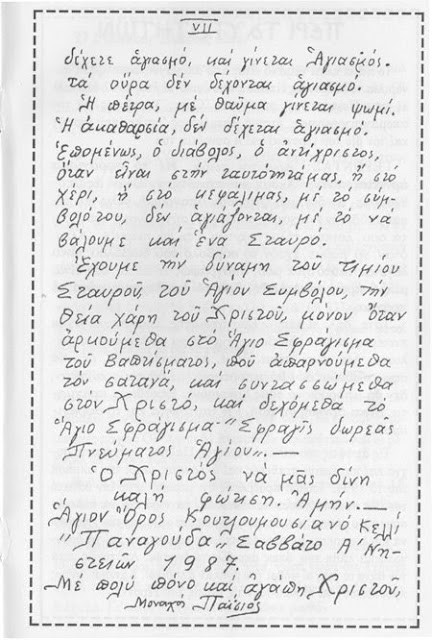 VII
δέχετε ἁγιασμό, καί γίνεται Ἁγιασμός.
τά οὖρα δέν δέχονται ἁγιασμό.
Ἡ πέτρα, μέ θαῦμα γίνεται ψωμί.
Ἡ ἀκαθαρσία, δέν δέχεται ἁγιασμό.
Ἑπομένως, ὁ διάβολος, ὁ ἀντίχριστος,
ὅταν εἶναι στήν ταυτότητάμας, ἤ στό
χέρι, ἤ στό κεφάλιμας, μέ τό σύμ-
βολότου, δέν ἁγιάζονται, μέ τό νά
βάλουμε καί ἕνα Σταυρό.
Ἔχουμε τήν δύναμη τοῦ τιμίου
Σταυροῦ, τοῦ Ἁγίου Συμβόλου, τήν
θεία χάρη τοῦ Χριστοῦ, μόνον ὅταν
ἀρκούμεθα στό Ἅγιο Σφράγισμα
τοῦ Βαπτίσματος, πού ἀπαρνούμεθα
τόν σατανά, καί συντασσώμεθα
στόν Χριστό, καί δεχόμεθα τό
Ἅγιο Σφράγισμα- "Σφραγίς δωρεᾶς
Πνεύματος Ἁγίου". —
Ὁ Χριστός νά μᾶς δίνη
καλή φώτιση. Ἀμήν. —
Ἅγιον Ὄρος Κουτλουμουσιανό Κελλί
"Παναγούδα" Σάββατο Α' Νη-
στειῶν 1987.
Μέ πολύ πόνο καί ἀγάπη Χριστοῦ,
Μοναχός Παΐσιος